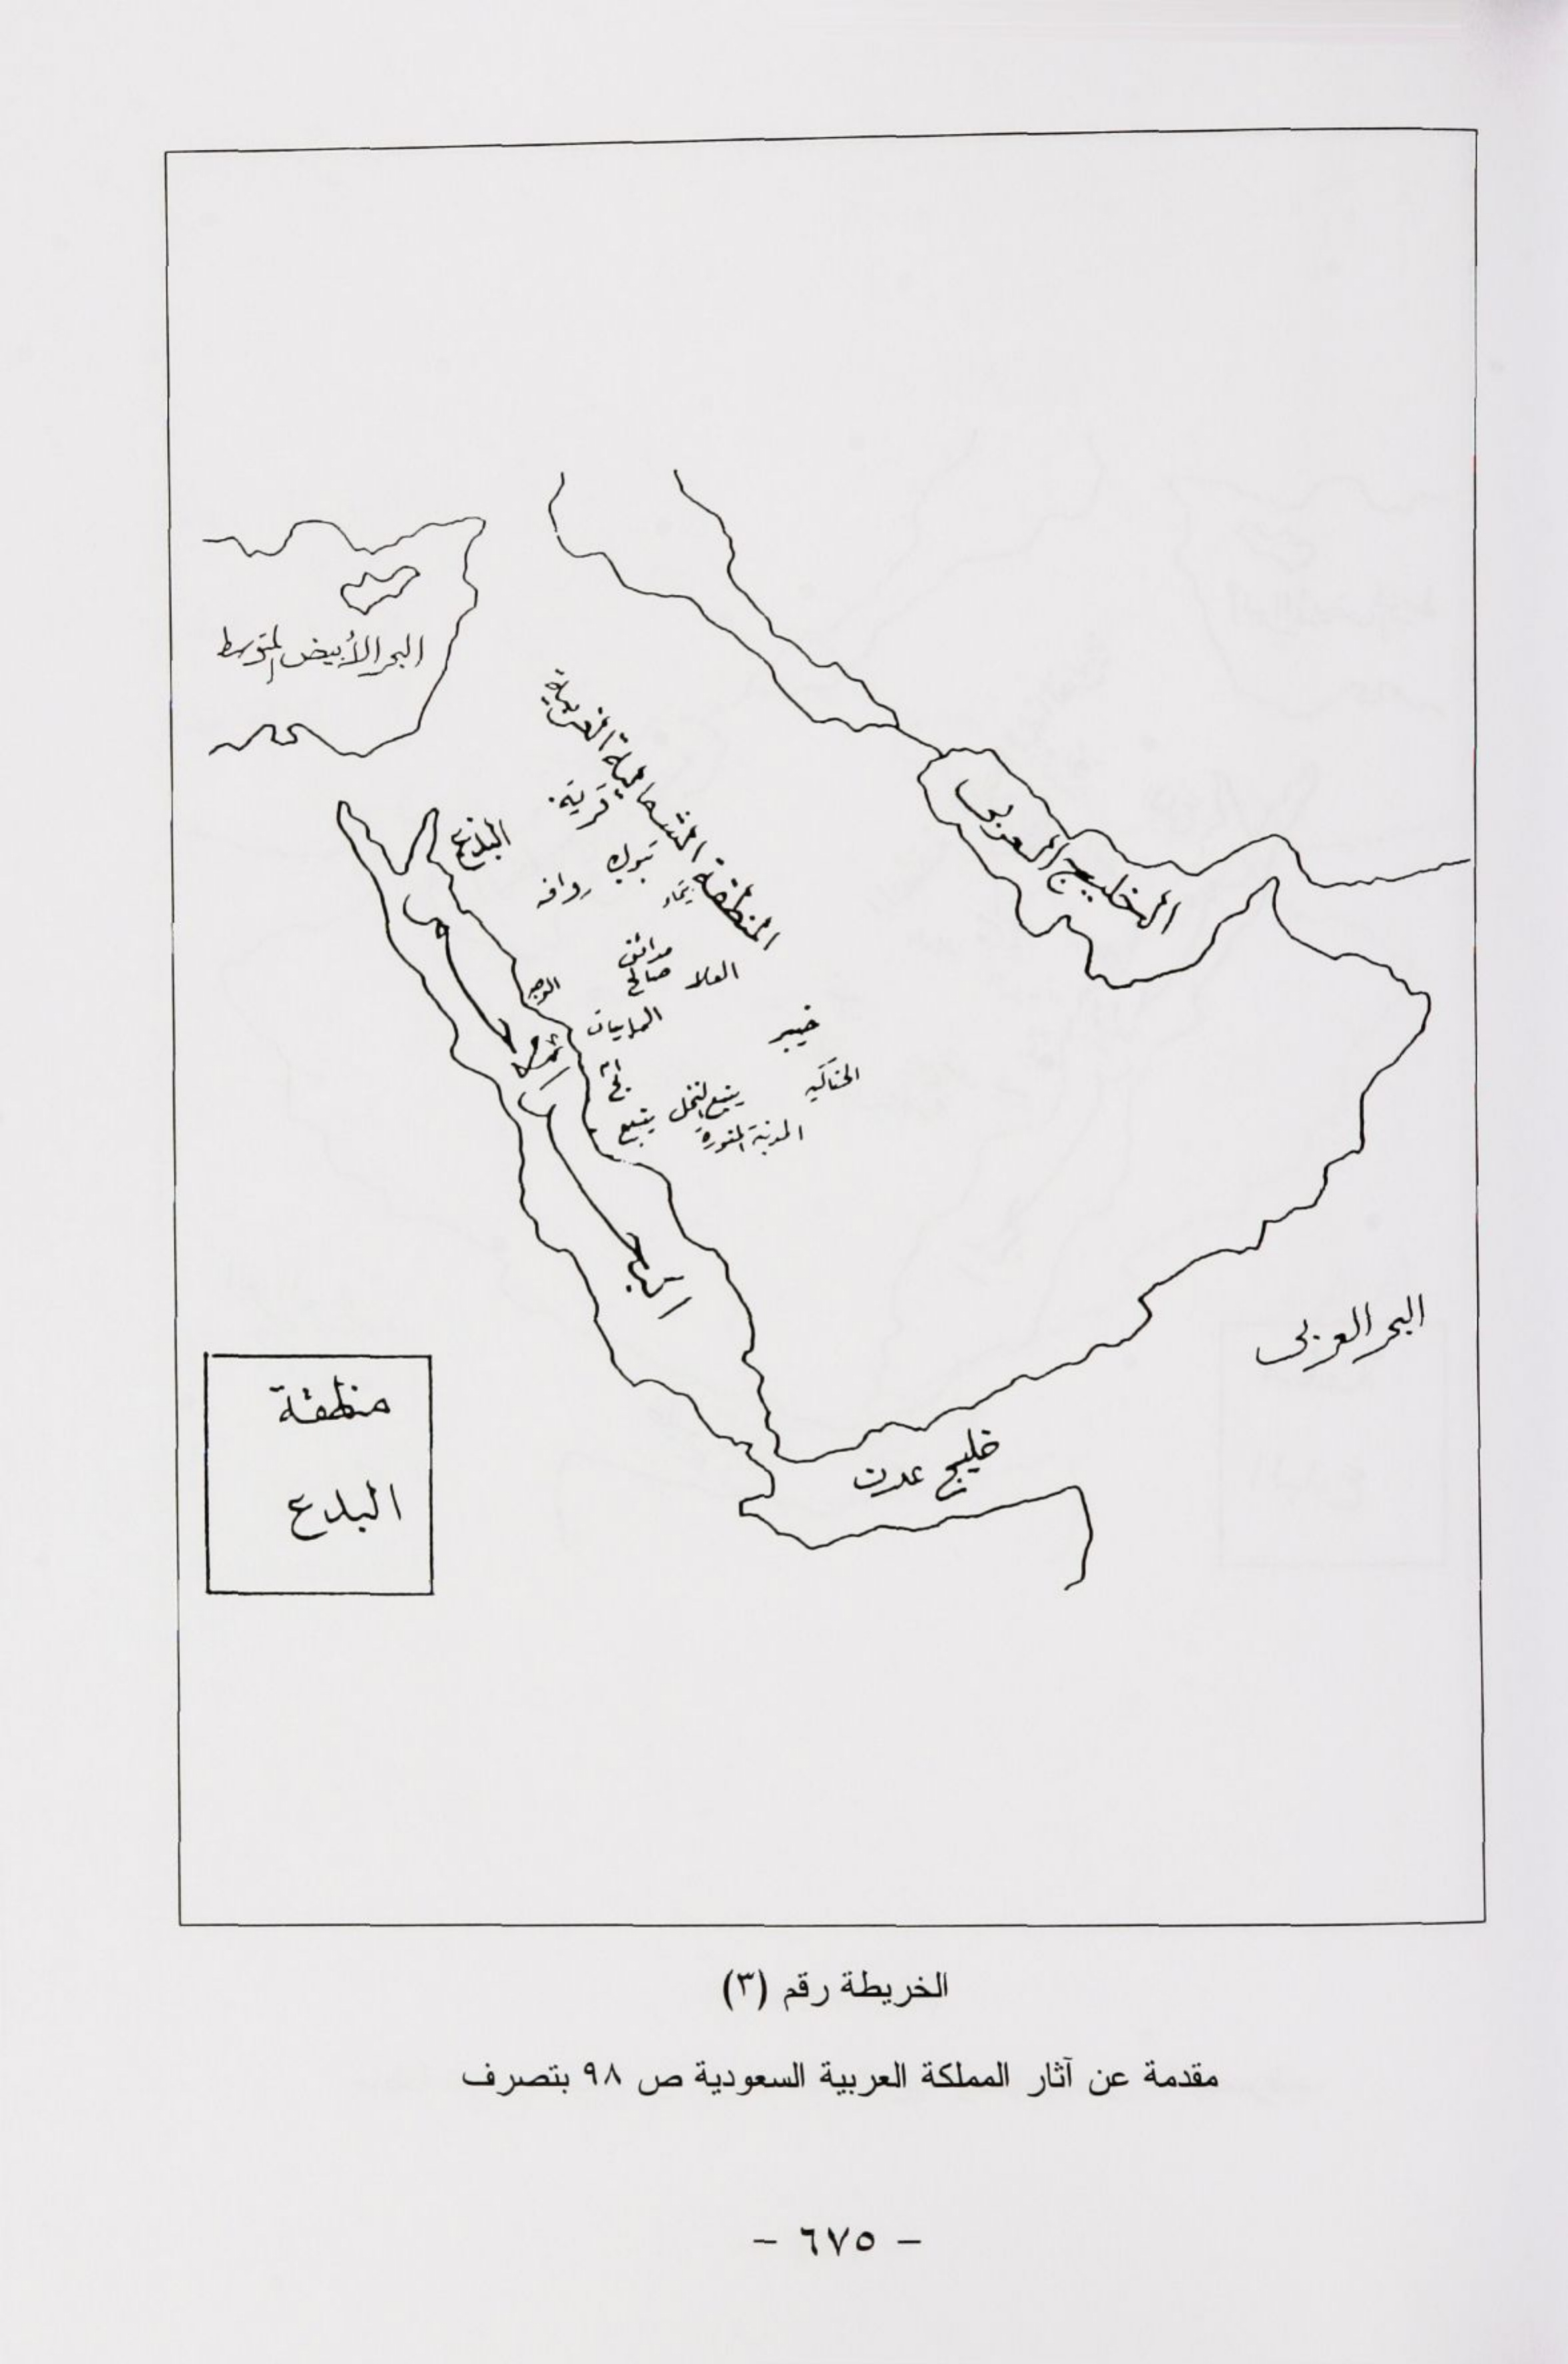 البحر الأبيض المتوسط
المنطقة الشمالية الغربية
قرية
البدع
تبوك
روافه
تيماء
الخليج العربي
مدائن
صالح
العلا
الوجه
المابيات
خيبر
الحناكيه
ينبع النخل
ينبع
المدينة المنورة
البحر الأحمر
البحر العربي
خليج عدن
منطقة
البدع
الخريطة رقم (٣)
مقدمة عن آثار المملكة العربية السعودية ص ٩٨ بتصرف
– ٦٧٥ –